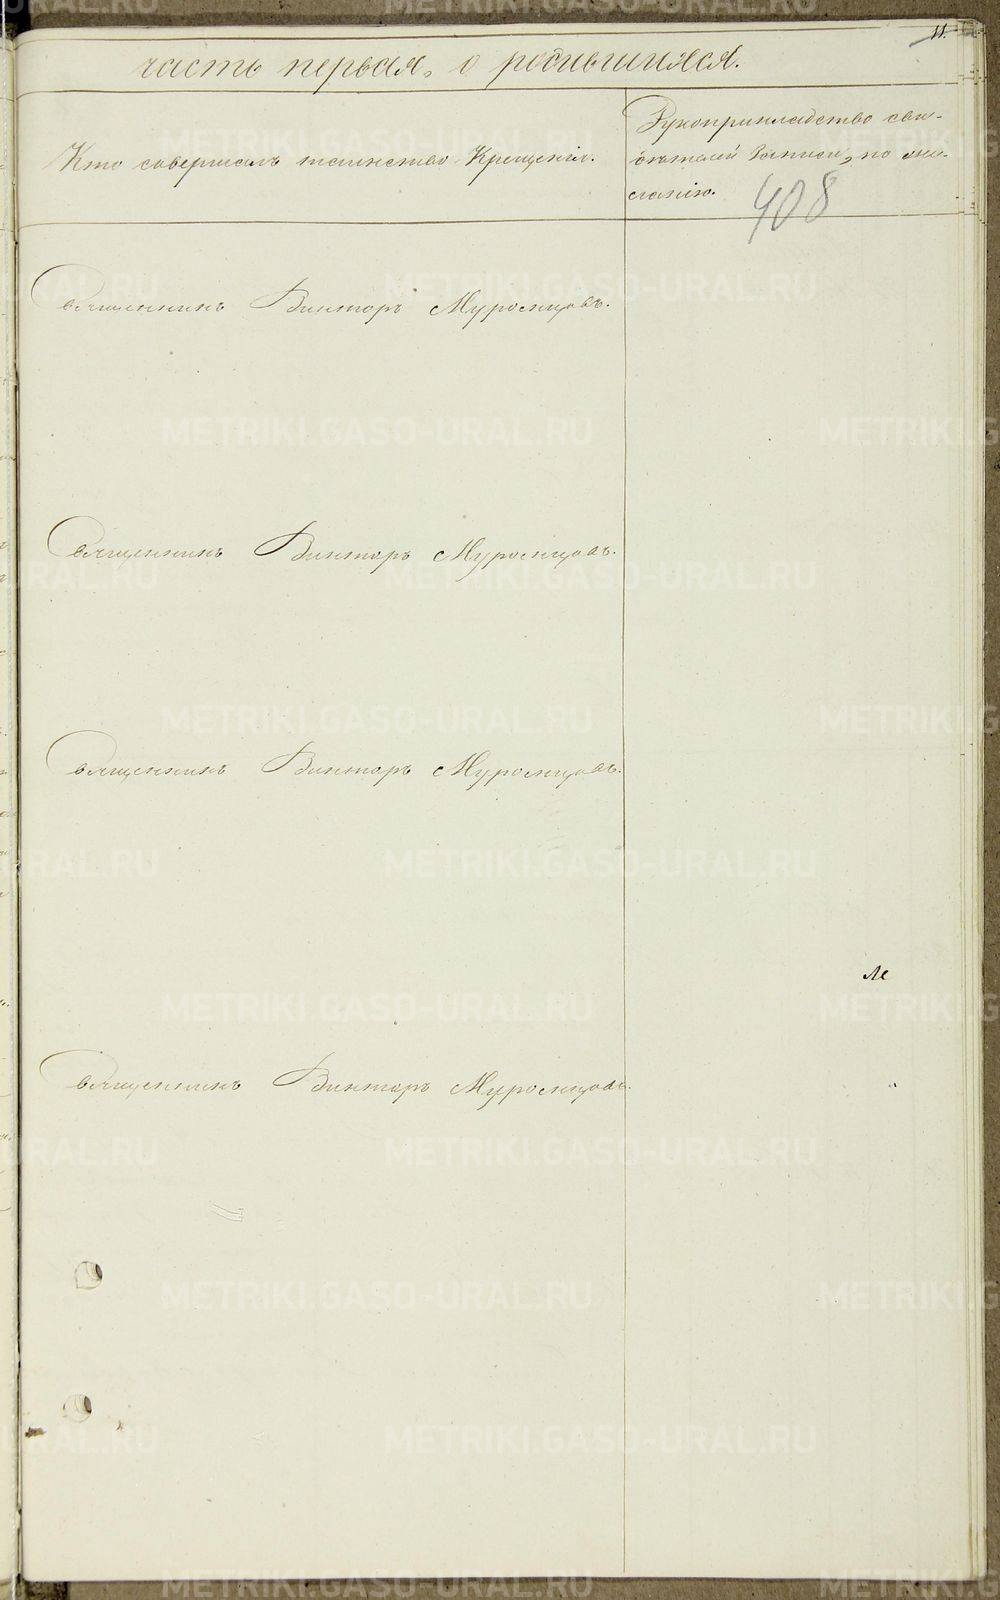 11.
часть первая, о родившихся.
Кто совершалъ таинство Крещенія.
Рукоприкладство сви-
дѣтелей записи, по же-
ланію.
408
Священникъ Викторъ Муромцовъ.
Священникъ Викторъ Муромцовъ.
Священникъ Викторъ Муромцовъ.
Священникъ Викторъ Муромцовъ.
METRIKI.GASO-URAL.RU